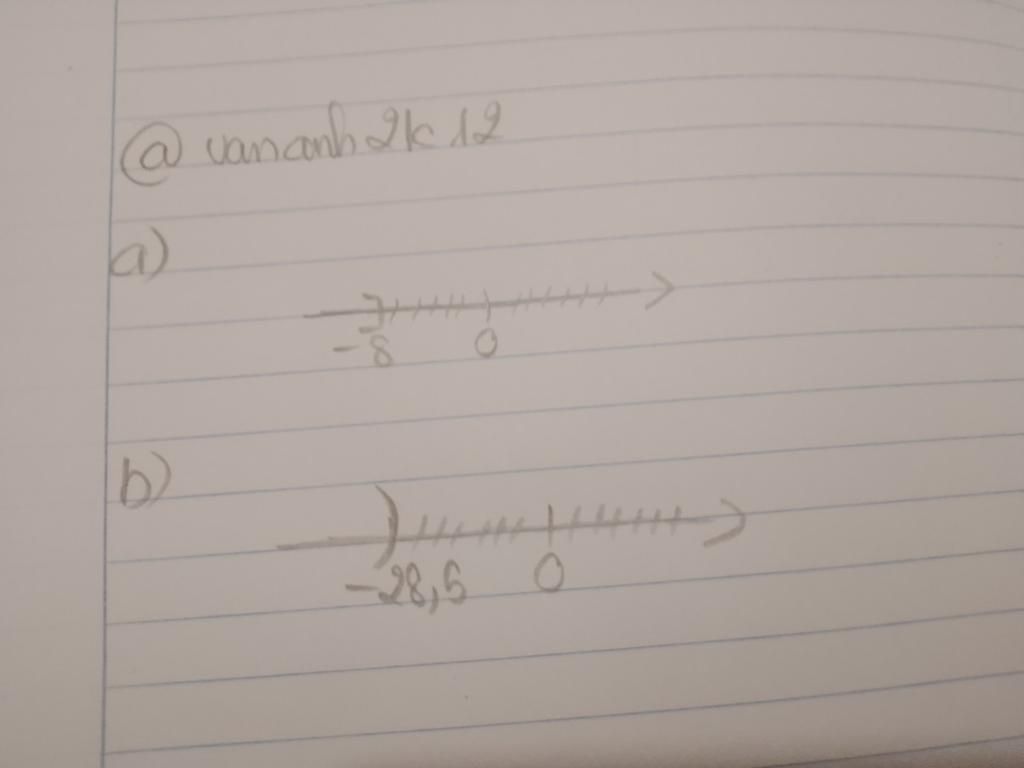 @ vananh2k12
a)
-8 0
b)
-28,5 0